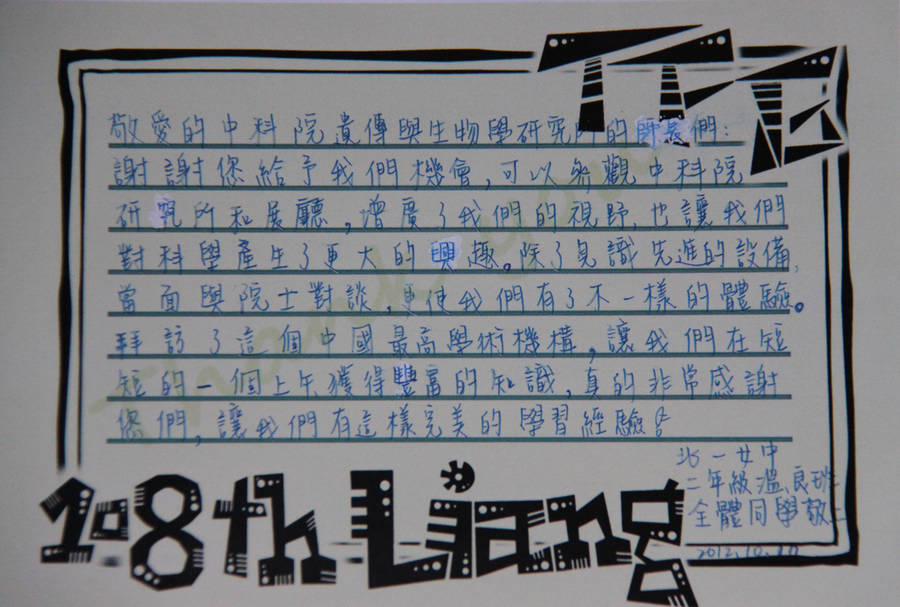 TFG
敬愛的中科院遺傳與生物學研究所的師長們：
謝謝您給予我們機會，可以參觀中科院
研究所和展廳，增廣了我們的視野，也讓我們
對科學產生了更大的興趣。除了見識先進的設備，
當面與院士對談，更使我們有了不一樣的體驗。
拜訪了這個中國最高學術機構，讓我們在短
短的一個上午獲得豐富的知識，真的非常感謝
您們，讓我們有這樣完美的學習經驗！
Thank you
北一女中
二年級溫良班
全體同學敬上
2012.10.10
108th Liang